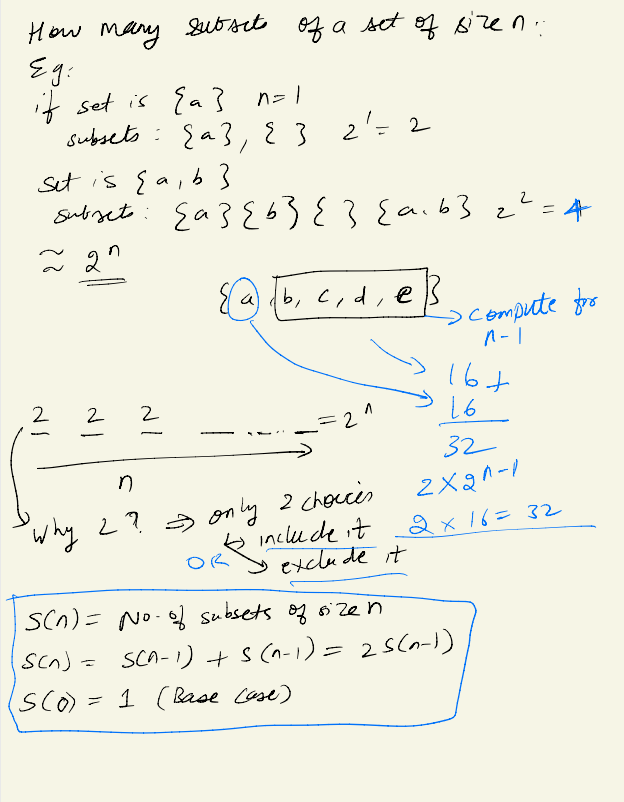 How many subsets of a set of size n:
Eg:
if set is {a} n=1
subsets: {a}, { } 2^1 = 2
set is {a,b}
subsets: {a} {b} { } {a.b} 2^2 = 4
≈ 2^n
{a, b, c, d, e}
compute for
n-1
16 +
16
32
2 × 2^n-1
2 × 16 = 32
2 2 2 _ ..... _ = 2^n
n
Why 2? ⇒ only 2 choices
↳ include it
OR ↘ exclude it
S(n) = No. of subsets of size n
S(n) = S(n-1) + S(n-1) = 2S(n-1)
S(0) = 1 (Base case)